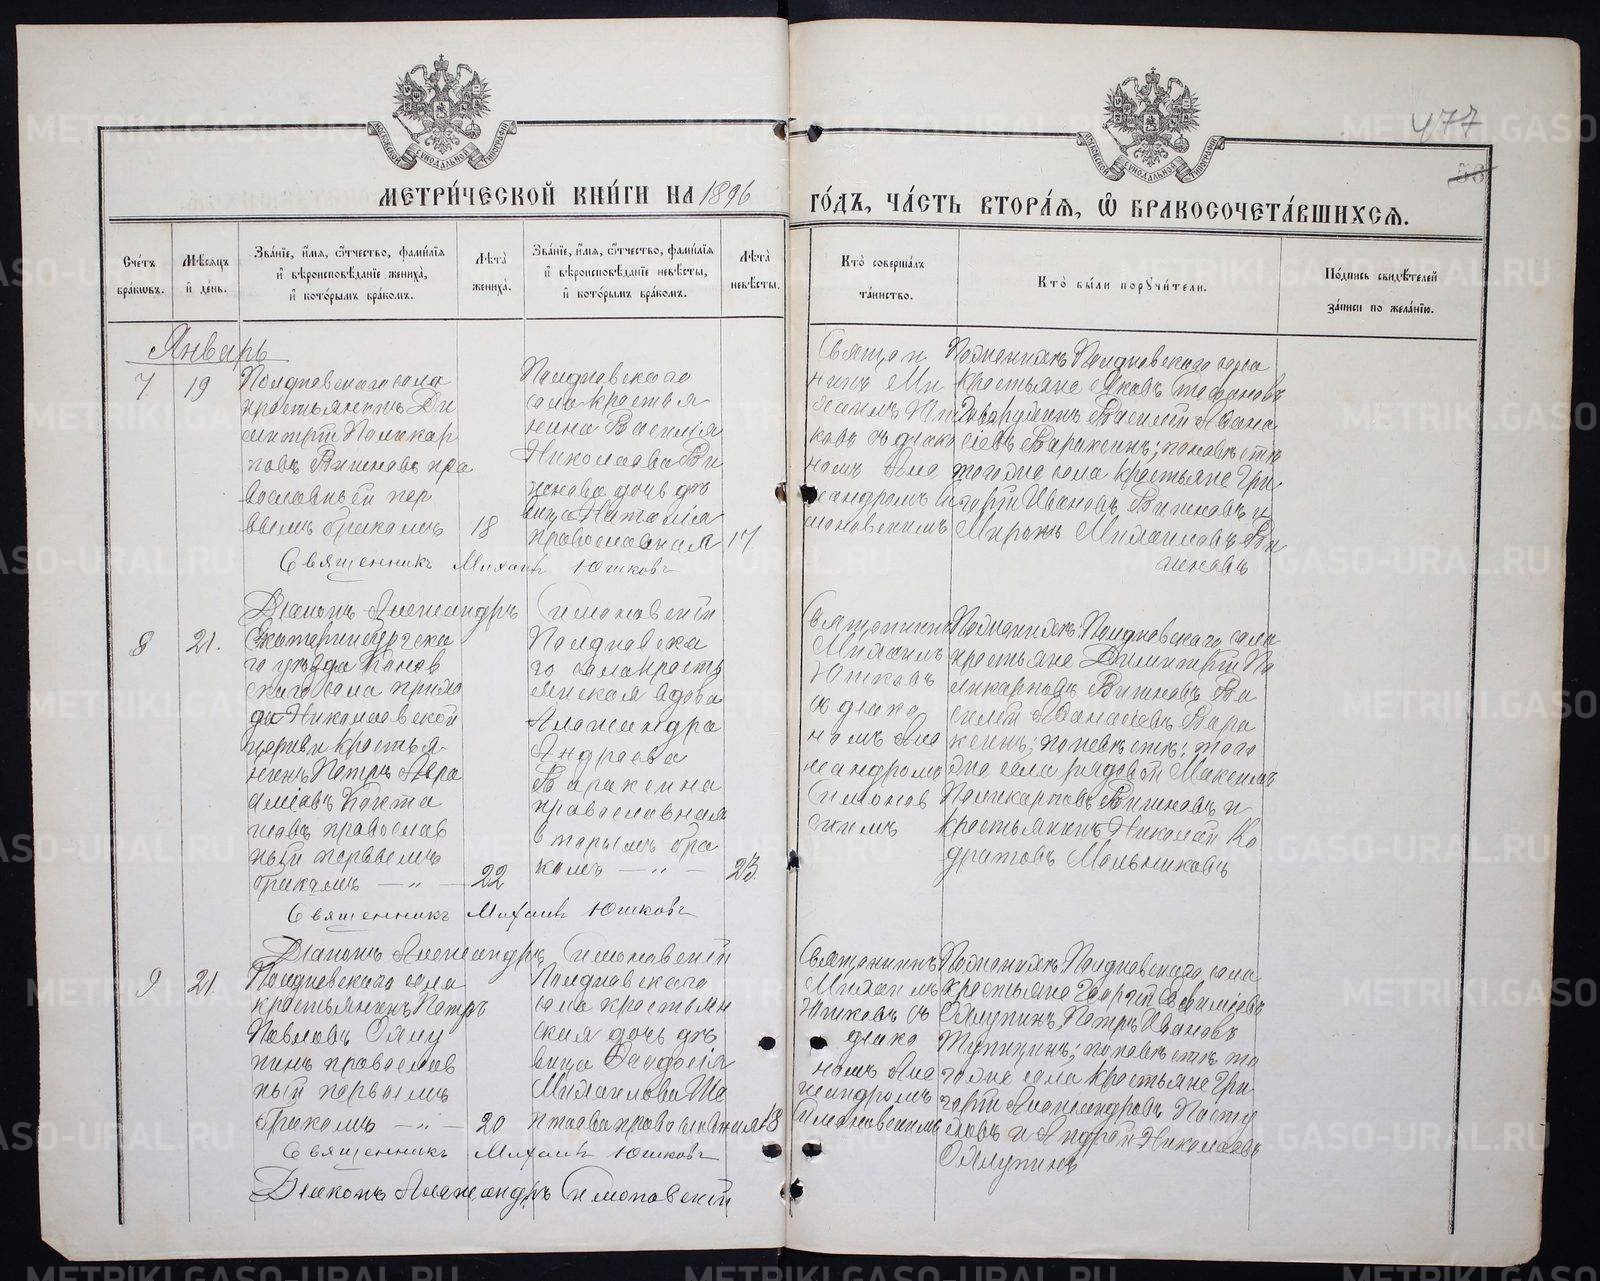 МЕТРИ́ЧЕСКОЙ КНИ́ГИ НА 1896
ГО́ДЪ, ЧА́СТЬ ВТОРА́Я, Ѡ БРАКОСОЧЕТА́ВШИХСЯ.
477
МОСКОВСКОЙ СѴНОДАЛЬНОЙ ТИПОГРАФІИ
МОСКОВСКОЙ СѴНОДАЛЬНОЙ ТИПОГРАФІИ
Сче́тъ
бра́ковъ.
Мѣ́сяцъ
и҆ де́нь.
Зва́нїе, и҆́мя, ѻ҆́тчество, фами́лїя
и҆ вѣроисповѣ́данїе жениха̀,
и҆ кото́рымъ бра́комъ.
Лѣта̀
жениха̀.
Зва́нїе, и҆́мя, ѻ҆́тчество, фами́лїя
и҆ вѣроисповѣ́данїе невѣ́сты,
и҆ кото́рымъ бра́комъ.
Лѣта̀
невѣ́сты.
Кто̀ соверша́лъ
та́инство.
Кто̀ бы́ли порꙋчи́тели.
По́дпись свидѣ́телей
за́писи по жела́нїю.
Январь
7
19
Полдневскаго села
крестьянинъ Ди
митрій Поликар
повъ Вишневъ пра
вославный пер
вымъ бракомъ
18
Полдневскаго
села крестья
нина Василія
Николаева Ви
шнева дочь дѣ
вица Наталія
православная
17
Священ
никъ Ми
хаилъ Юш
ковъ съ діако
номъ Але
ксандромъ Си
моновскимъ
По женихѣ: Полдневскаго села
крестьяне Яковъ Стефановъ
Василій Аѳана
сіевъ Варакинъ; по невѣстѣ:
тогоже села крестьяне Гри
горій Ивановъ Вишневъ и
Миронъ Михаиловъ Ви
шневъ
Священникъ Михаилъ Юшковъ
Діаконъ Александръ Симоновскій
8
21.
Екатеринбургска
го уѣзда
скаго села прихо
да Николаевской
церкви крестья
нинъ Петръ Авра
аміевъ
православ
ный первымъ
бракомъ — „ —
22
Полдневска
го села кресть
янская вдова
Александра
Андреева
Варакина
православная
вторымъ бра
комъ — „ —
23.
Священникъ
Михаилъ
Юшковъ
съ діако
номъ Але
ксандромъ
Симонов
скимъ
По женихѣ: Полдневскаго села
крестьяне Димитрій По
ликарповъ Вишневъ, Ва
силій Аѳанасіевъ Вара
кинъ; по невѣстѣ: того
же села рядовой Максимъ
Поликарповъ Вишневъ и
крестьянинъ Николай Ко
дратовъ Мельниковъ
Священникъ Михаилъ Юшковъ
Діаконъ Александръ Симоновскій
9
21
Полдневскаго села
крестьянинъ Петръ
Павловъ Оялу
пинъ православ
ный первымъ
бракомъ — „ —
20
Полдневскаго
села крестьян
ская дочь дѣ
вица
Михаилова Ше
православная
18
Священникъ
Михаилъ
Юшковъ съ
діако
номъ Але
ксандромъ
Симоновскимъ
По женихѣ: Полдневскаго села
крестьяне Георгій
Петръ Ивановъ
по невѣстѣ: то
гоже села крестьяне Гри
горій Александровъ
и Андрей Николаевъ
Священникъ Михаилъ Юшковъ
Діаконъ Александръ Симоновскій
METRIKI.GASO-URAL.RU